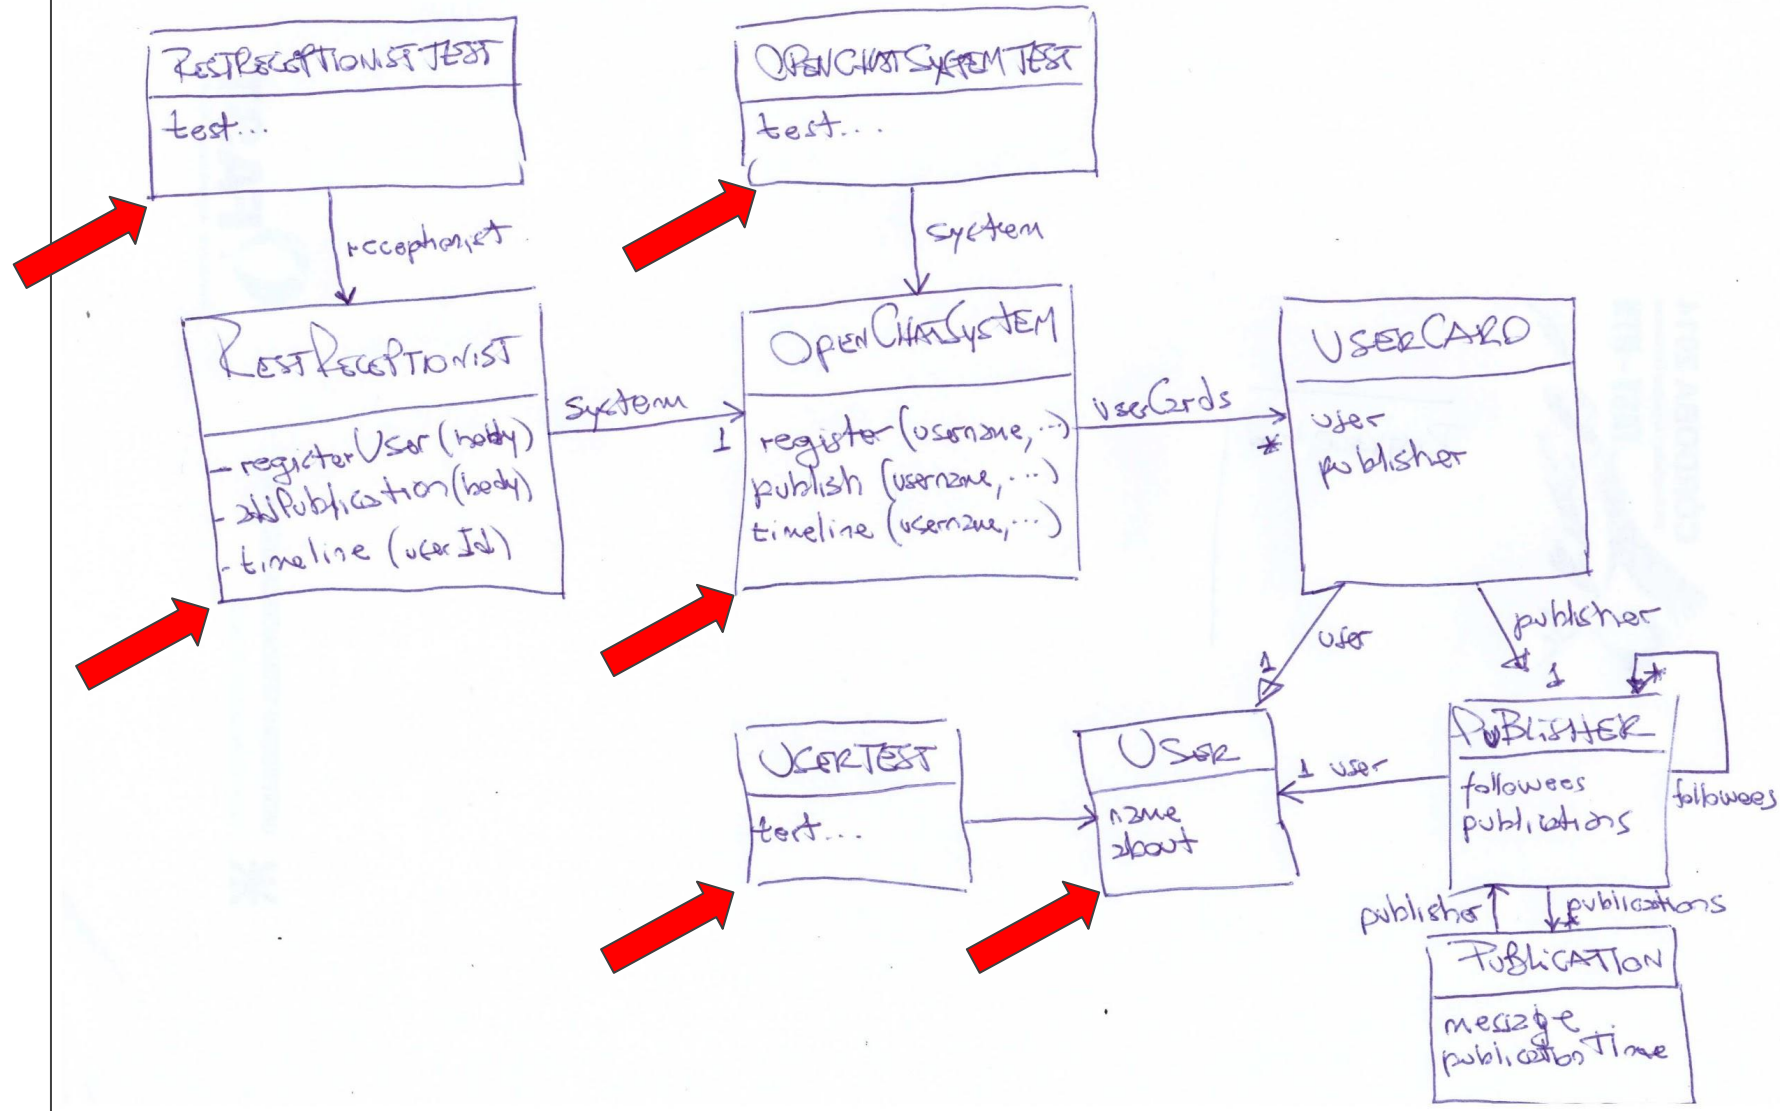 RESTRECEPTIONIST TEST
test...
receptionist
OPENCHATSYSTEM TEST
test...
system
RESTRECEPTIONIST
- registerUser (body)
- addPublication (body)
- timeline (userId)
system
1
OPENCHATSYSTEM
register (username, ...)
publish (username, ...)
timeline (username, ...)
userCards
*
USERCARD
user
publisher
user
1
publisher
1
USERTEST
test...
USER
name
about
1 user
PUBLISHER
followees
publications
*
followees
publisher
publications
*
PUBLICATION
message
publicationTime